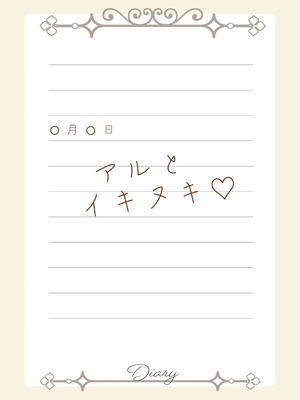 〇月〇日
アルと
イキヌキ♡
Diary